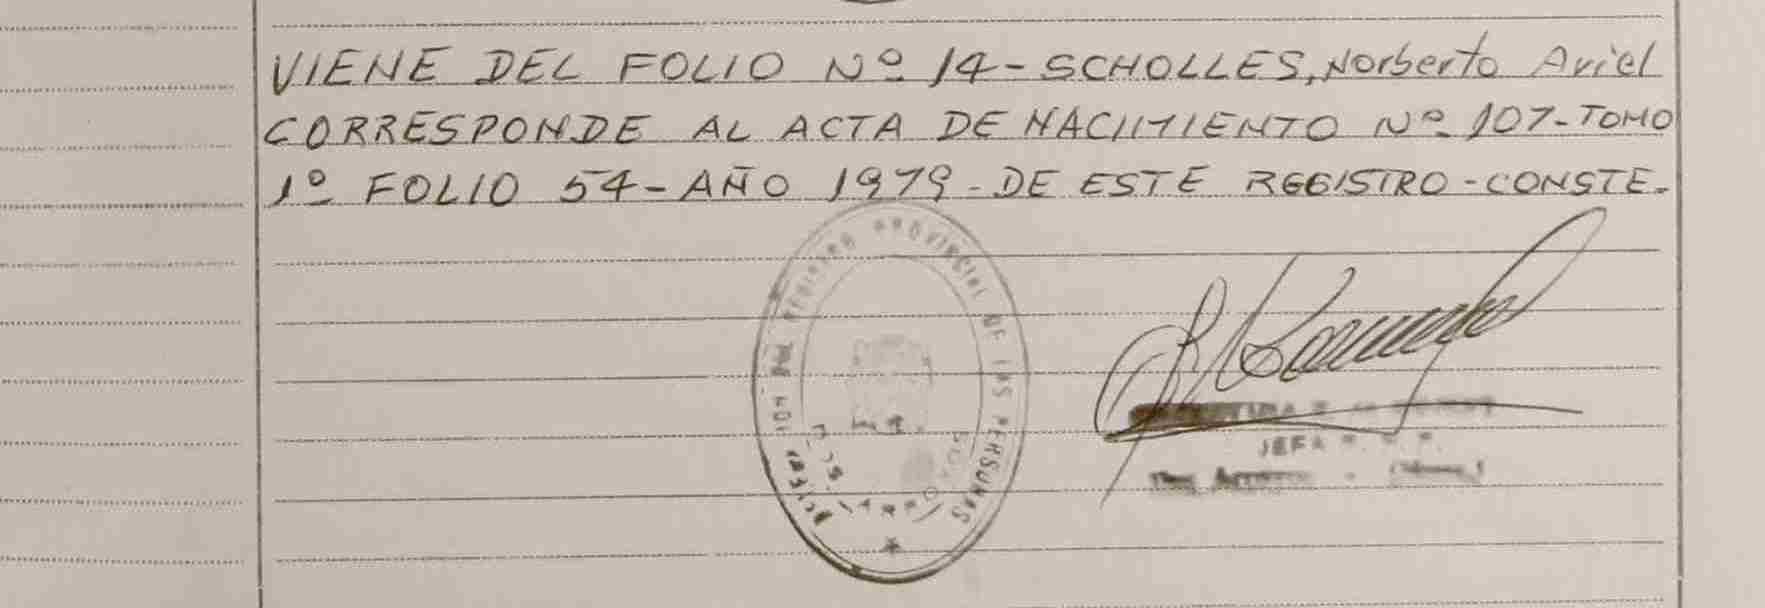 VIENE DEL FOLIO Nº 14 - SCHOLLES, Norberto Ariel
CORRESPONDE AL ACTA DE NACIMIENTO Nº 107 - TOMO
1º FOLIO 54 - AÑO 1979 - DE ESTE REGISTRO - CONSTE.
REGISTRO PROVINCIAL DE LAS PERSONAS
JEFA